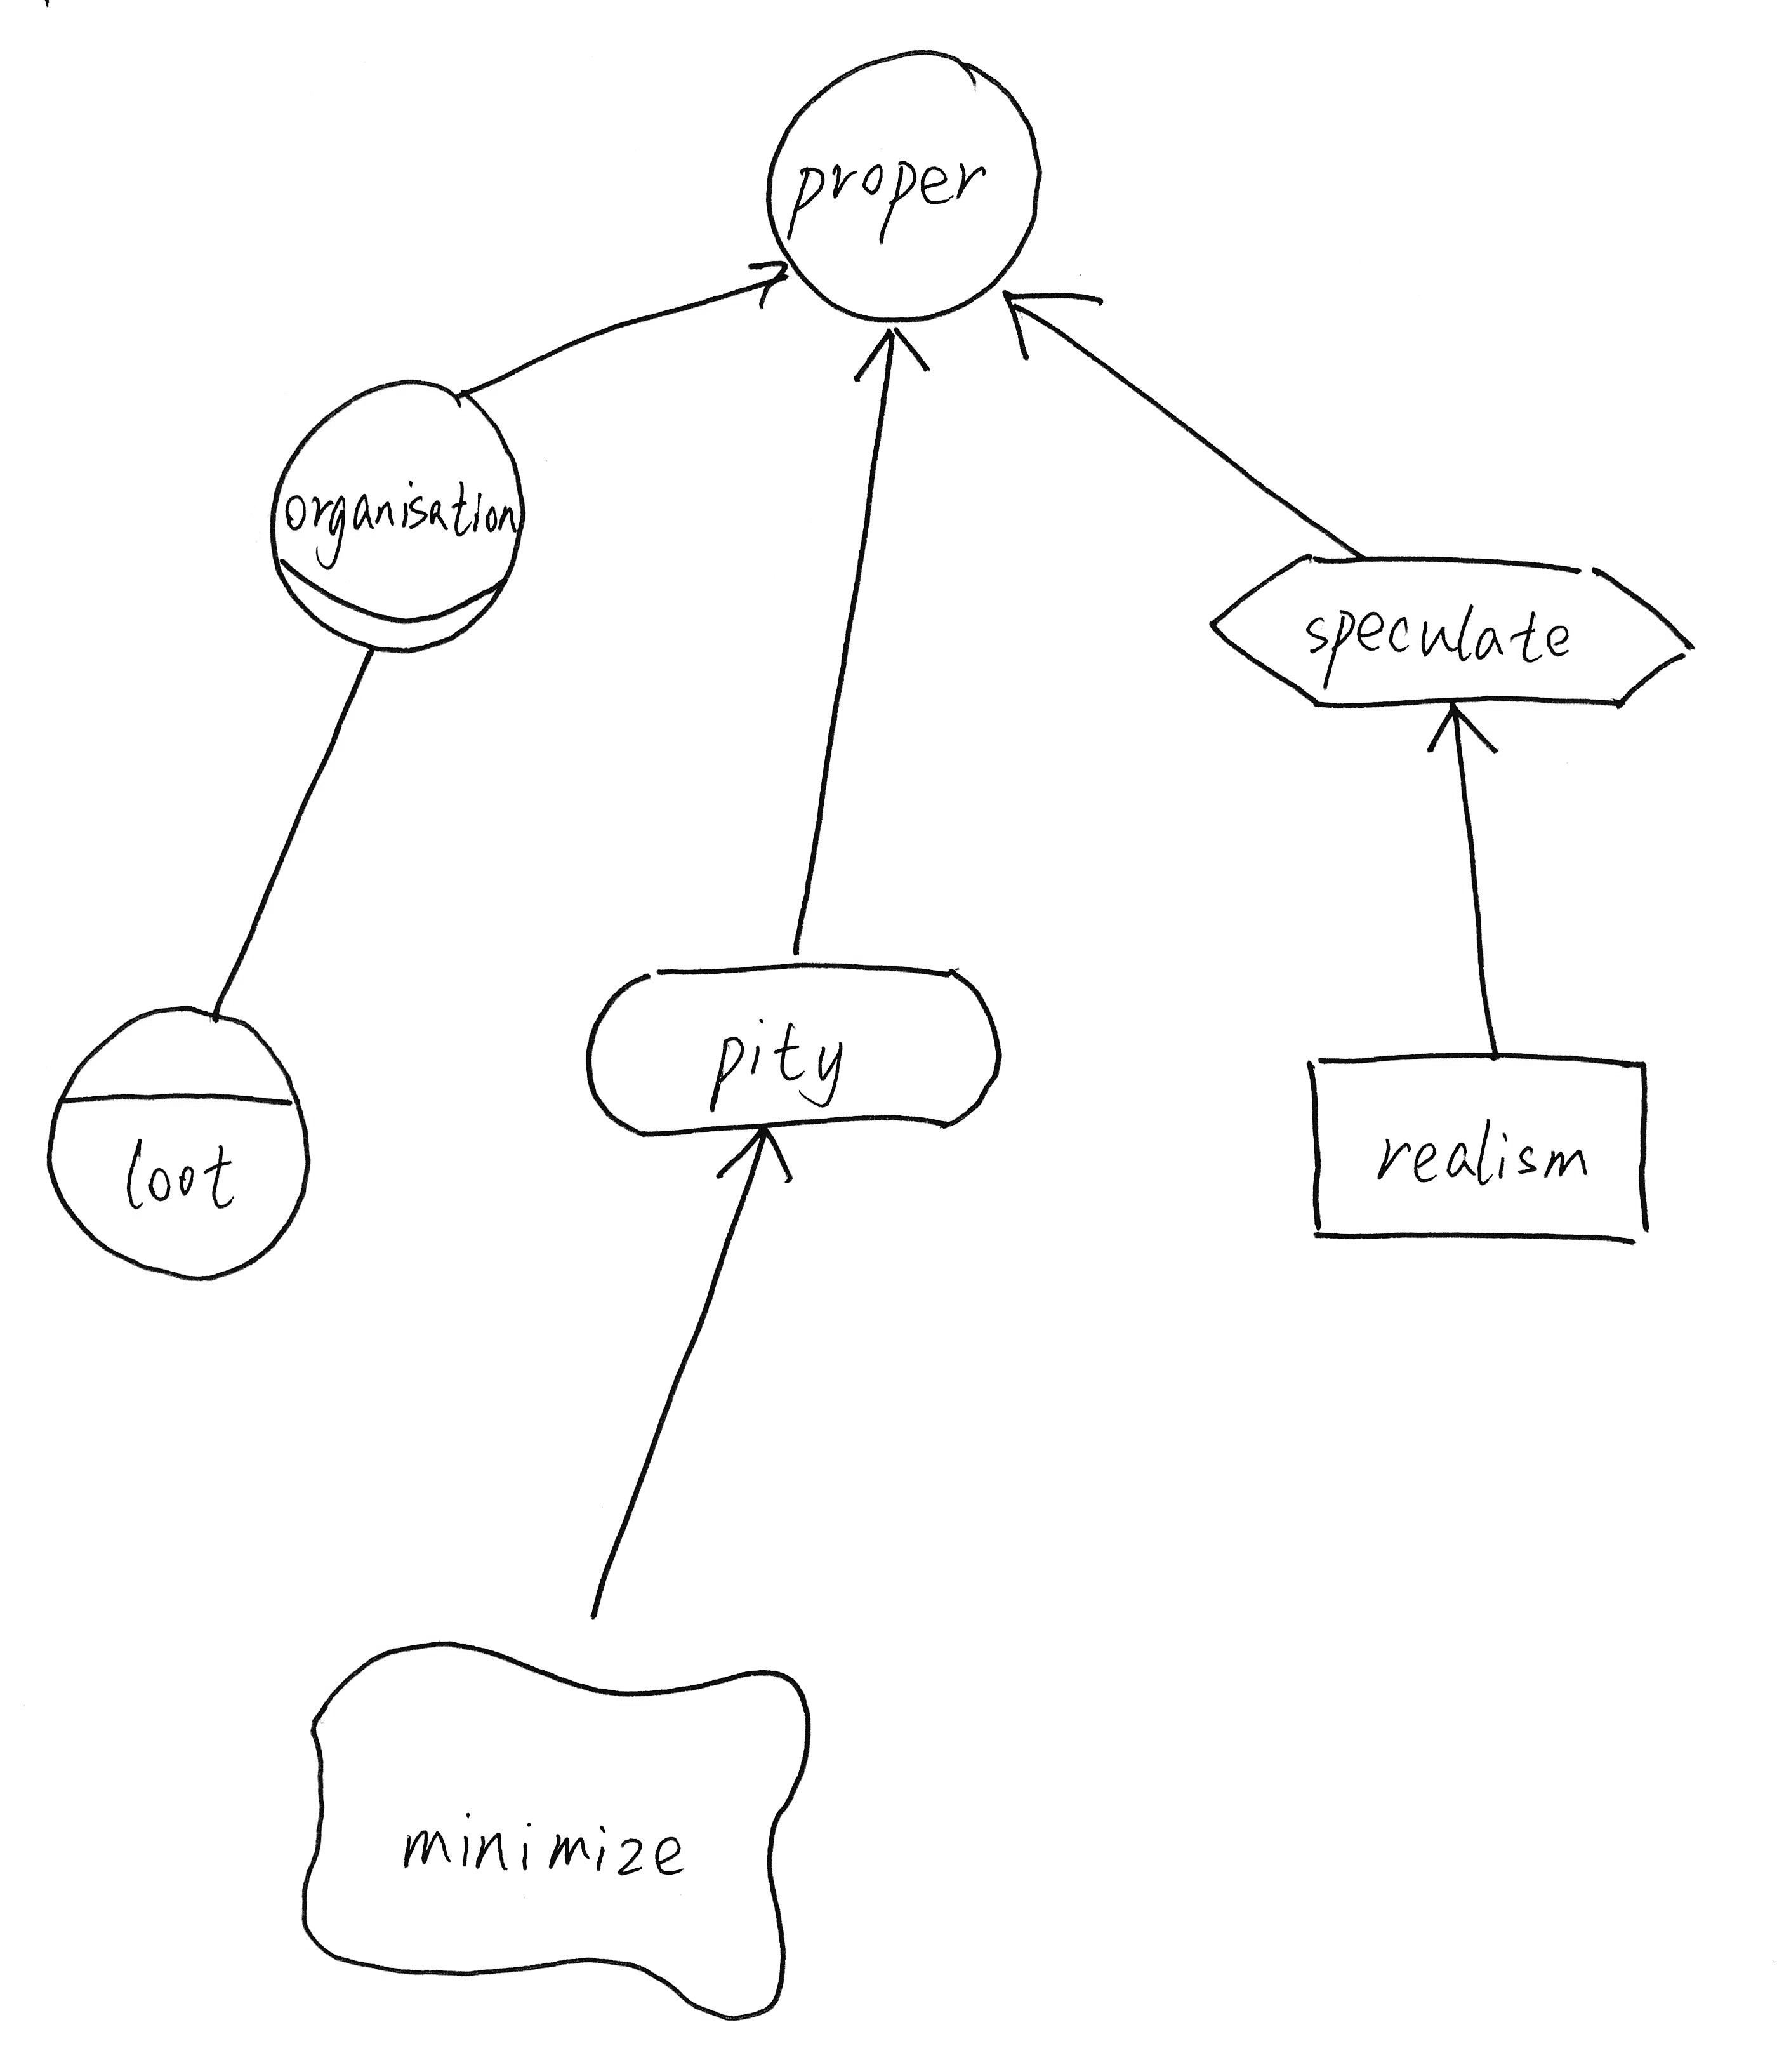 proper
organisation
speculate
pity
loot
realism
minimize